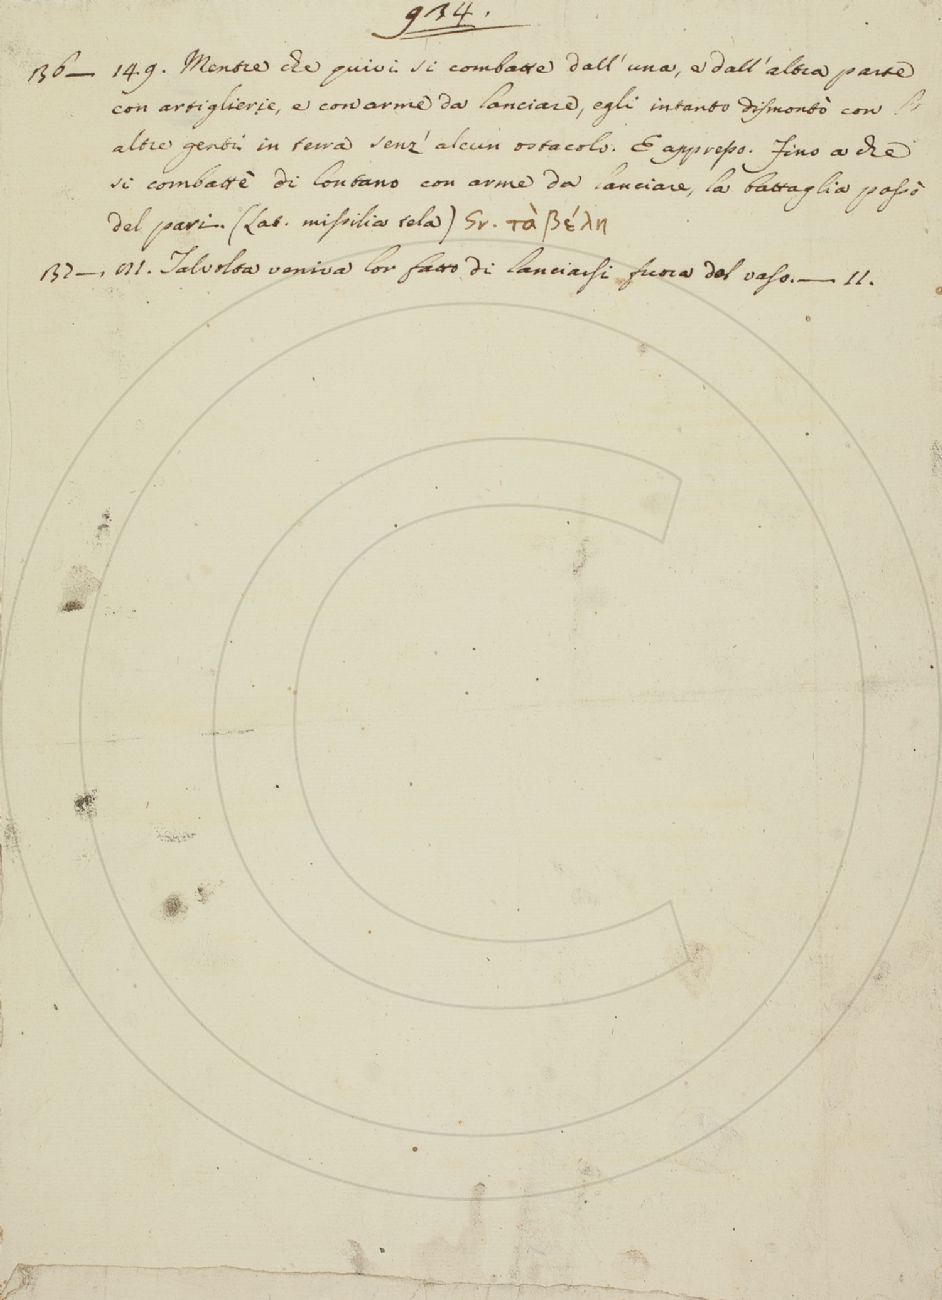 934.
136— 149. Mentre che quivi si combatte dall' una, e dall' altra parte
con artiglierie, e con arme da lanciare, egli intanto dismontò con
altre genti in terra senz' alcun ostacolo. E appresso. Fino a che
si combattè di lontano con arme da lanciare, la battaglia passò
del pari. (Lat. missilia tela) Gr. τὰ βέλη
137—, 011. Talvolta veniva lor fatto di lanciarsi fuora del vaso.— 11.